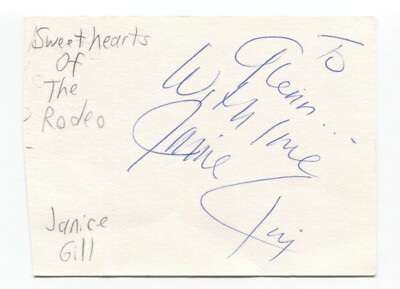 Sweethearts
Of
The
Rodeo
Janice
Gill
To
Glenn...
With love
Janice
Gill